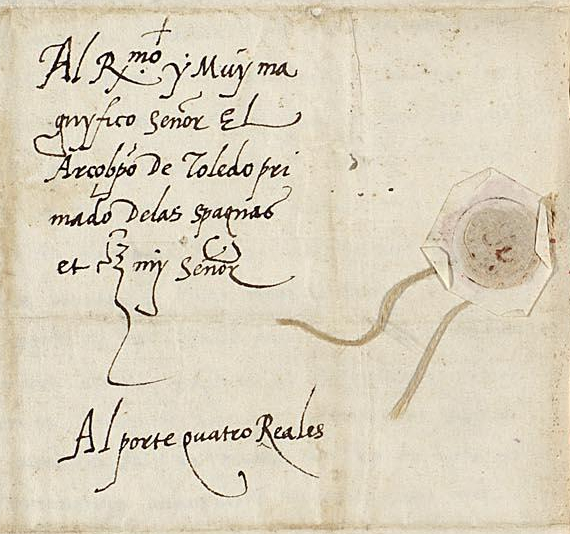 Al Rmo y Muy ma
gnyfico señor El
Arcobpo De Toledo pri
mado Delas spagnas
et mj señor
Al porte quatro Reales